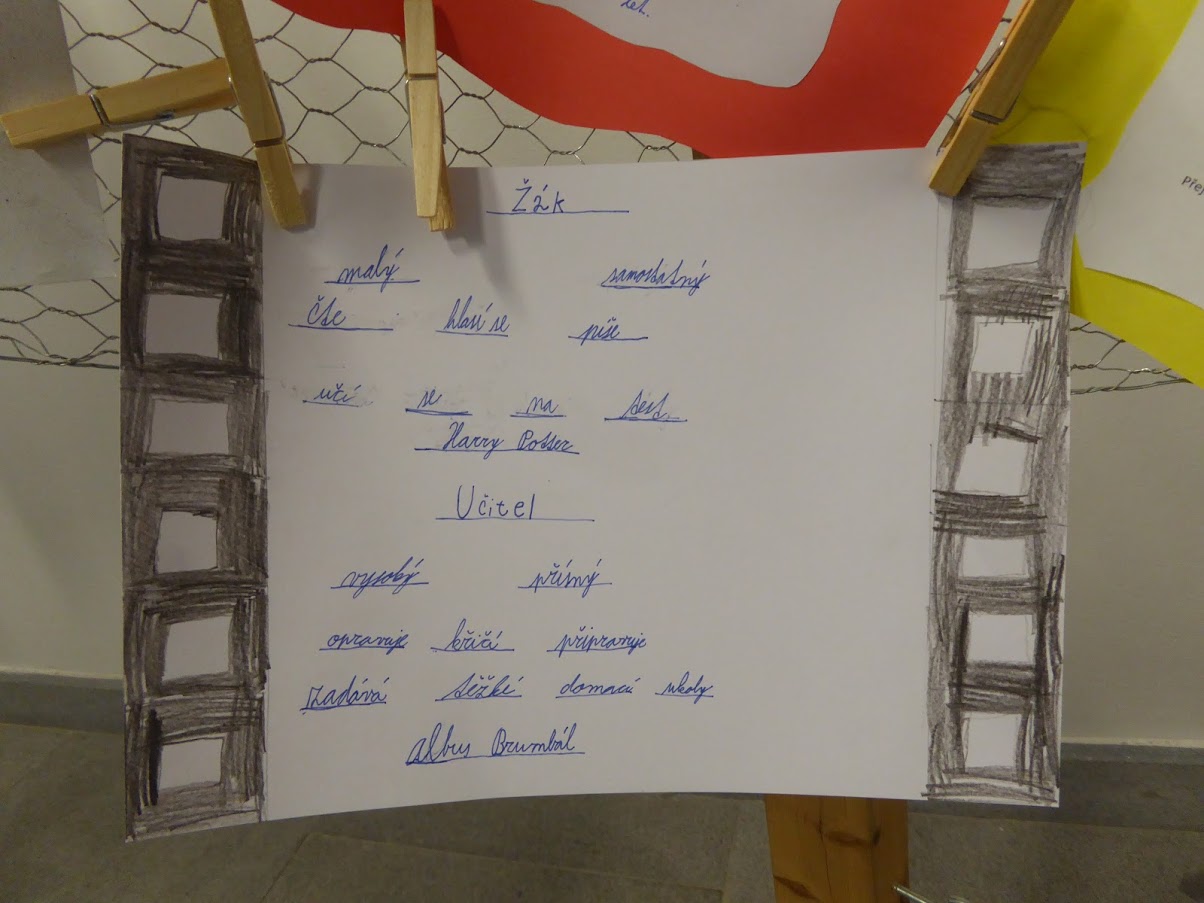 leh.
Přej
Žák
malý samostatný
čte hlásí se píše
učí se na test.
Harry Potter
Učitel
vysoký přísný
opravuje křičí připravuje
zadává těžké domací ukoly
albus Brumbál